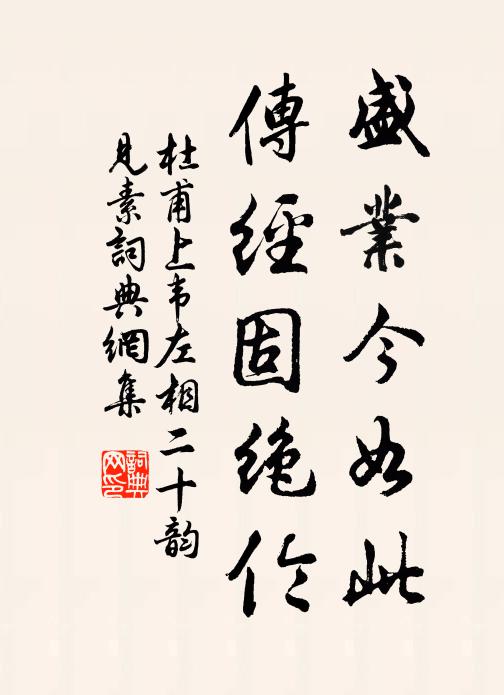 盛業今如此
傳經固絶倫
杜甫上韦左相二十韵
見素詞典網集
詞典网印